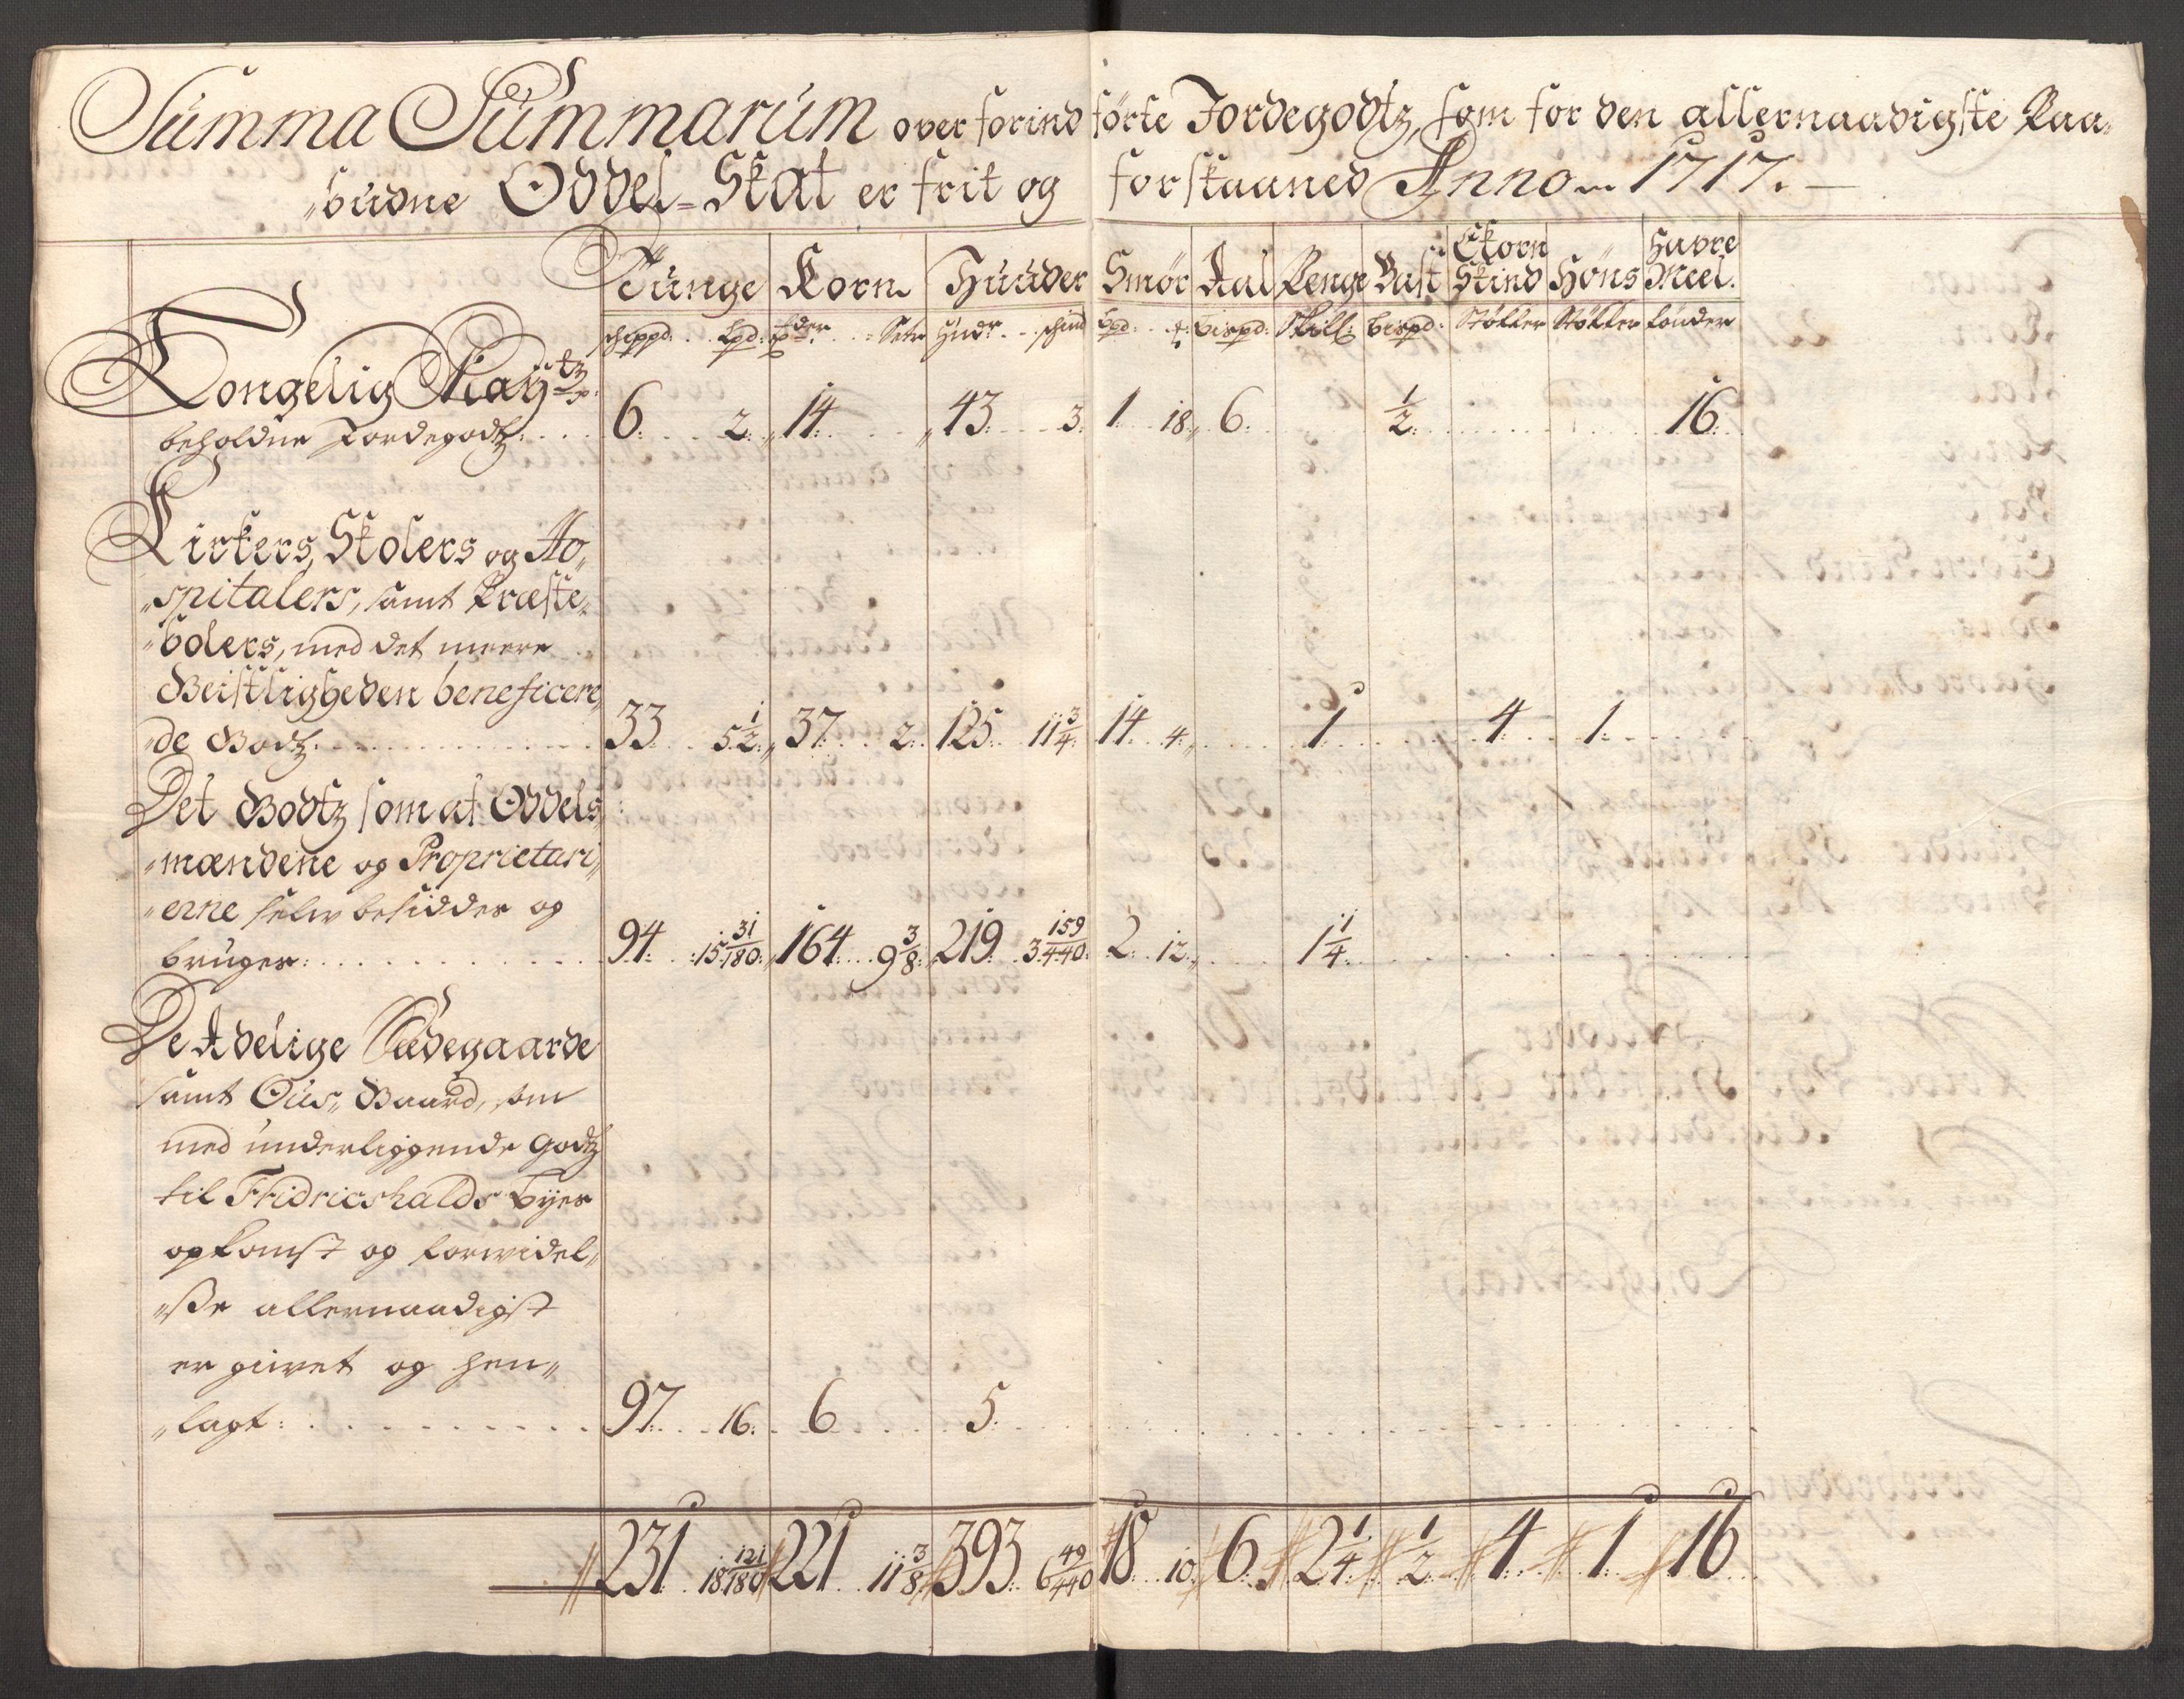 Summa Summarum over forind førte Jordegodtz, som for den allernaadigste Paa„
„budne Oddel-Skat er frit og forskaaned Anno 1717.
Tunge Korn Huuder Smør Aal Penge Vast Ekorn Skind Høns Havre Meel.
schippd: Lpd: Setn Hudr. schind bpd: bispd: Skill: bispd: Støcker Støcker tønder
Kongelig Maÿtz
beholdne Jordegodtz: 6. 2. 14. 43. 3. 1 18. 6. 1/2. 16.
Kirkers, Skolers og Ho„
„spitalers, samt Præste„
„bolers, med det meere
Geistligheden beneficere„
„de Godtz. 33 5 1/2. 37. 2. 125. 11 3/4. 14. 4. 1. 4. 1.
Det Godtz som af Oddels„
„mændene og Proprietari„
„erne selv besidder og
bruger: 94. 15 31/180. 164. 9 3/8. 219. 3 159/440. 2. 12. 1 1/4.
De Adelige Sædegaarde
samt Ous„ Gaard, som
med underliggende godtz
til Fridricshalds byes
opkomst og forvidel„
„ße allernaadigst
er givet og hen„
„lagt: 97. 16. 6. 5.
231 18 121/180 221 11 3/8 393 6 49/440 18 10 6. 2 1/4 1/2 4 1 16